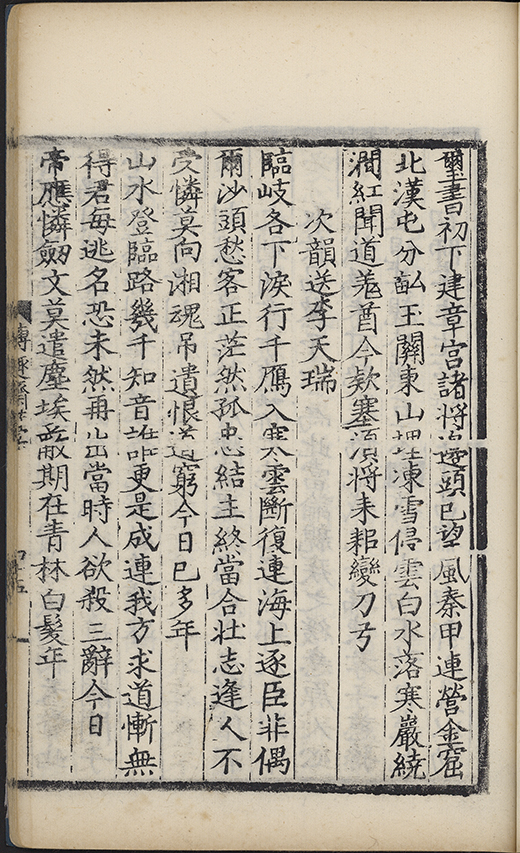 璽書初下建章宮諸將邊頭已望風秦甲連營金窟
北漢屯分畝玉關東山埋凍雪停雲白水落寒巖繞
澗紅聞道羗酋今欵塞須將耒耜變刀弓
次韻送李天瑞
臨岐各下淚行千鴈入寒雲斷復連海上逐臣非偶
爾沙頭愁客正茫然孤忠結主終當合壯志逢人不
受憐莫向湘魂吊遺恨道窮今日已多年
山水登臨路幾千知音誰更是成連我方求道慚無
得君每逃名恐未然再出當時人欲殺三辭今日
帝應憐劒文莫遣塵埃蔽期在青林白髮年
博趣齋藁